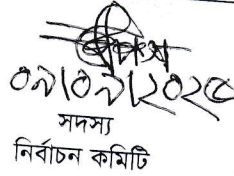 ০৯/০৯/২০২৫
সদস্য
নির্বাচন কমিটি